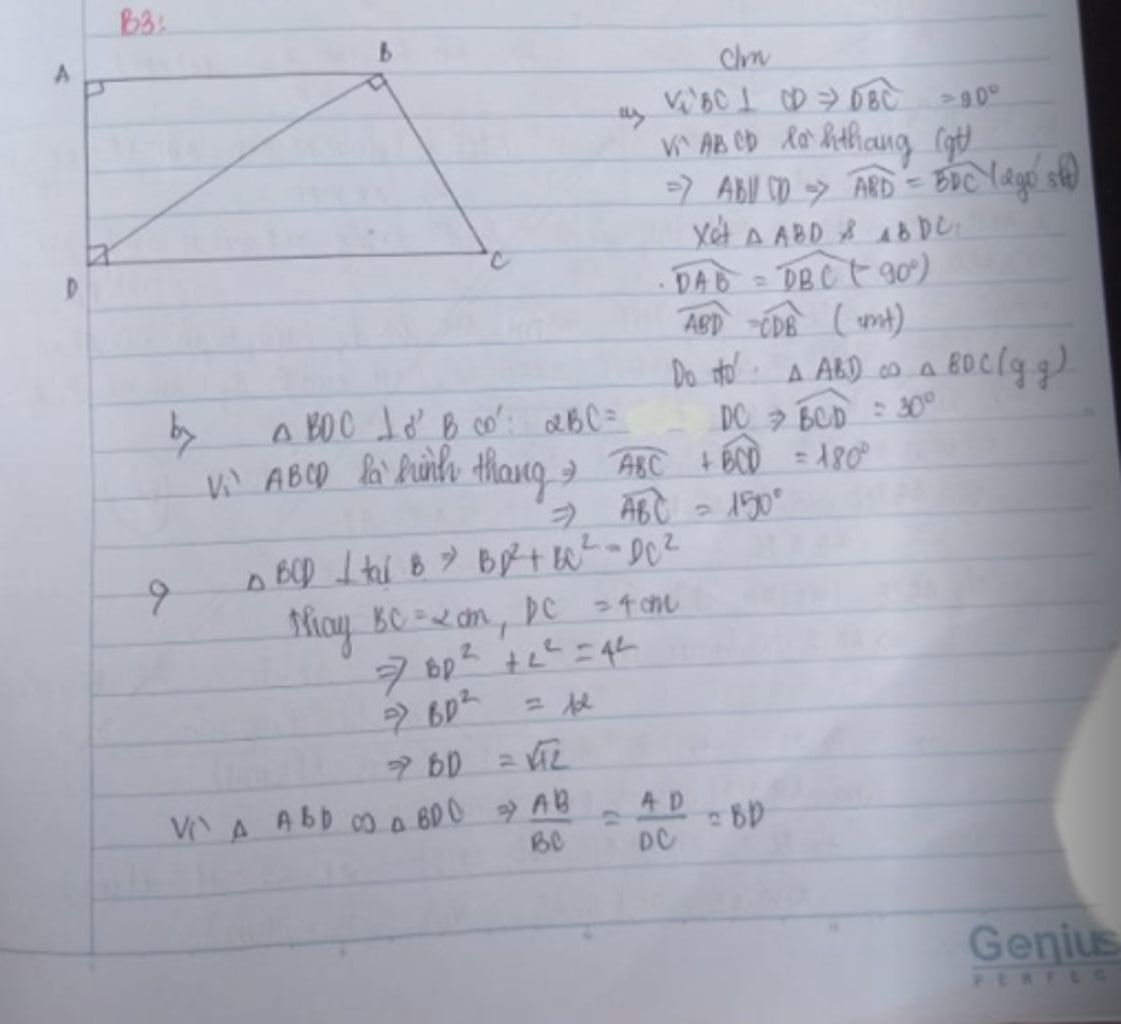 B3:
A
B
D
C
Cm
a, Vì BC ⊥ CD ⇒ DBC = 90°
Vì ABCD là hthang (gt)
⇒ AB // CD ⇒ ABD = BDC (2 góc slt)
Xét Δ ABD & Δ BDC:
. DAB = DBC (= 90°)
ABD = CDB (cmt)
Do đó: Δ ABD ∽ Δ BDC (g g)
b, Δ BDC ⊥ ở B có: 2BC = DC ⇒ BCD = 30°
Vì ABCD là hình thang ⇒ ABC + BCD = 180°
⇒ ABC = 150°
c, Δ BCD ⊥ tại B ⇒ BD² + BC² = DC²
thay BC = 2 cm, DC = 4 cm
⇒ BD² + 2² = 4²
⇒ BD² = 12
⇒ BD = √12
Vì Δ ABD ∽ Δ BDC ⇒ AB/BC = AD/DC = BD
Genius
PERFEC